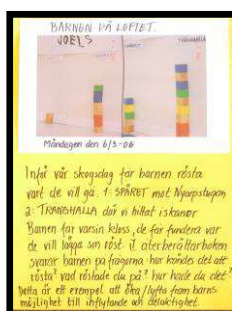 BARNEN PÅ LOFTET.
JOELS
TRANEHALLA
Måndagen den 6/3-06
Inför vår skogsdag får barnen rösta
vart de vill gå. 1: SPÅRET mot Nyarpstugan
2: TRANEHALLA där vi hittat iskanor
Barnen får varsin kloss, de får fundera var
de vill lägga sin röst. I återberättarboken
svarar barnen på frågorna: hur kändes det att
rösta? vad röstade du på? hur hade du det?
Detta är ett exempel att öka/lyfta fram barns
möjlighet till inflytande och delaktighet.